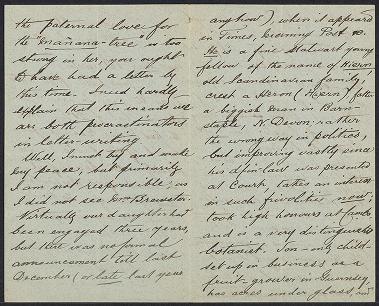 the paternal love for
the "mañana-tree is too
strong in her, you ought
to have had a letter by
this time. I need hardly
explain that this means we
are both procrastinators
in letter-writing
Well, I must try and make
my peace, but primarily
I am not responsible, as
I did not see Mrs Brewster.
Virtually our daughter had
been engaged three years,
but there was no formal
announcement till last
December (or late last year
anyhow), when it appeared
in Times, Morning Post &c.
He is a fine stalwart young
fellow of the name of Hiern
old Scandinavian family,
crest a Heron (Hiern) father
a biggish man in Barn-
staple, N Devon, rather
the wrong way in politics,
but improving vastly since
his d-in-law was presented
at Court, takes an interest
in such frivolities now;
took high honours at Camb.
and is a very distinguished
botanist. Son - only child -
set up in business as a
fruit-grower in Guernsey,
has acres under glass, and